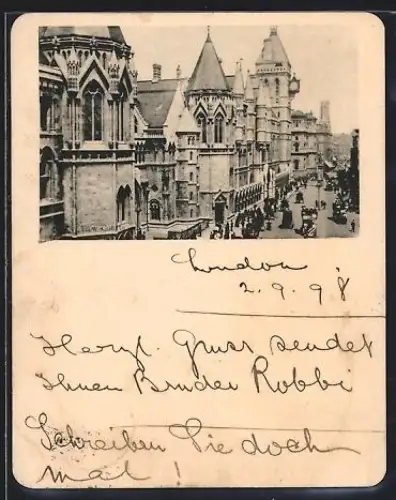 London
2.9.98
Herzl. Gruss sendet
Ihnen Bruder Robbi
Schreiben Sie doch
mal!